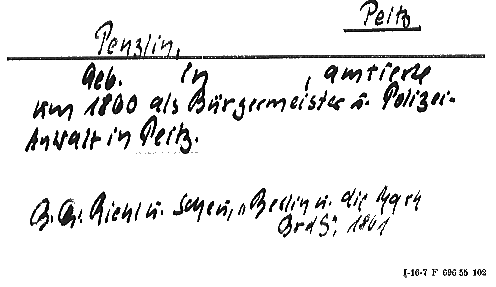 Peitz
Penzlin,
Geb. in , amtierte
um 1860 als Bürgermeister u. Polizei-
Anwalt in Peitz.
Riehl u. Scheu, „Berlin u. die Mark
Brdg", 1861
I-16-7 F 696 55 102